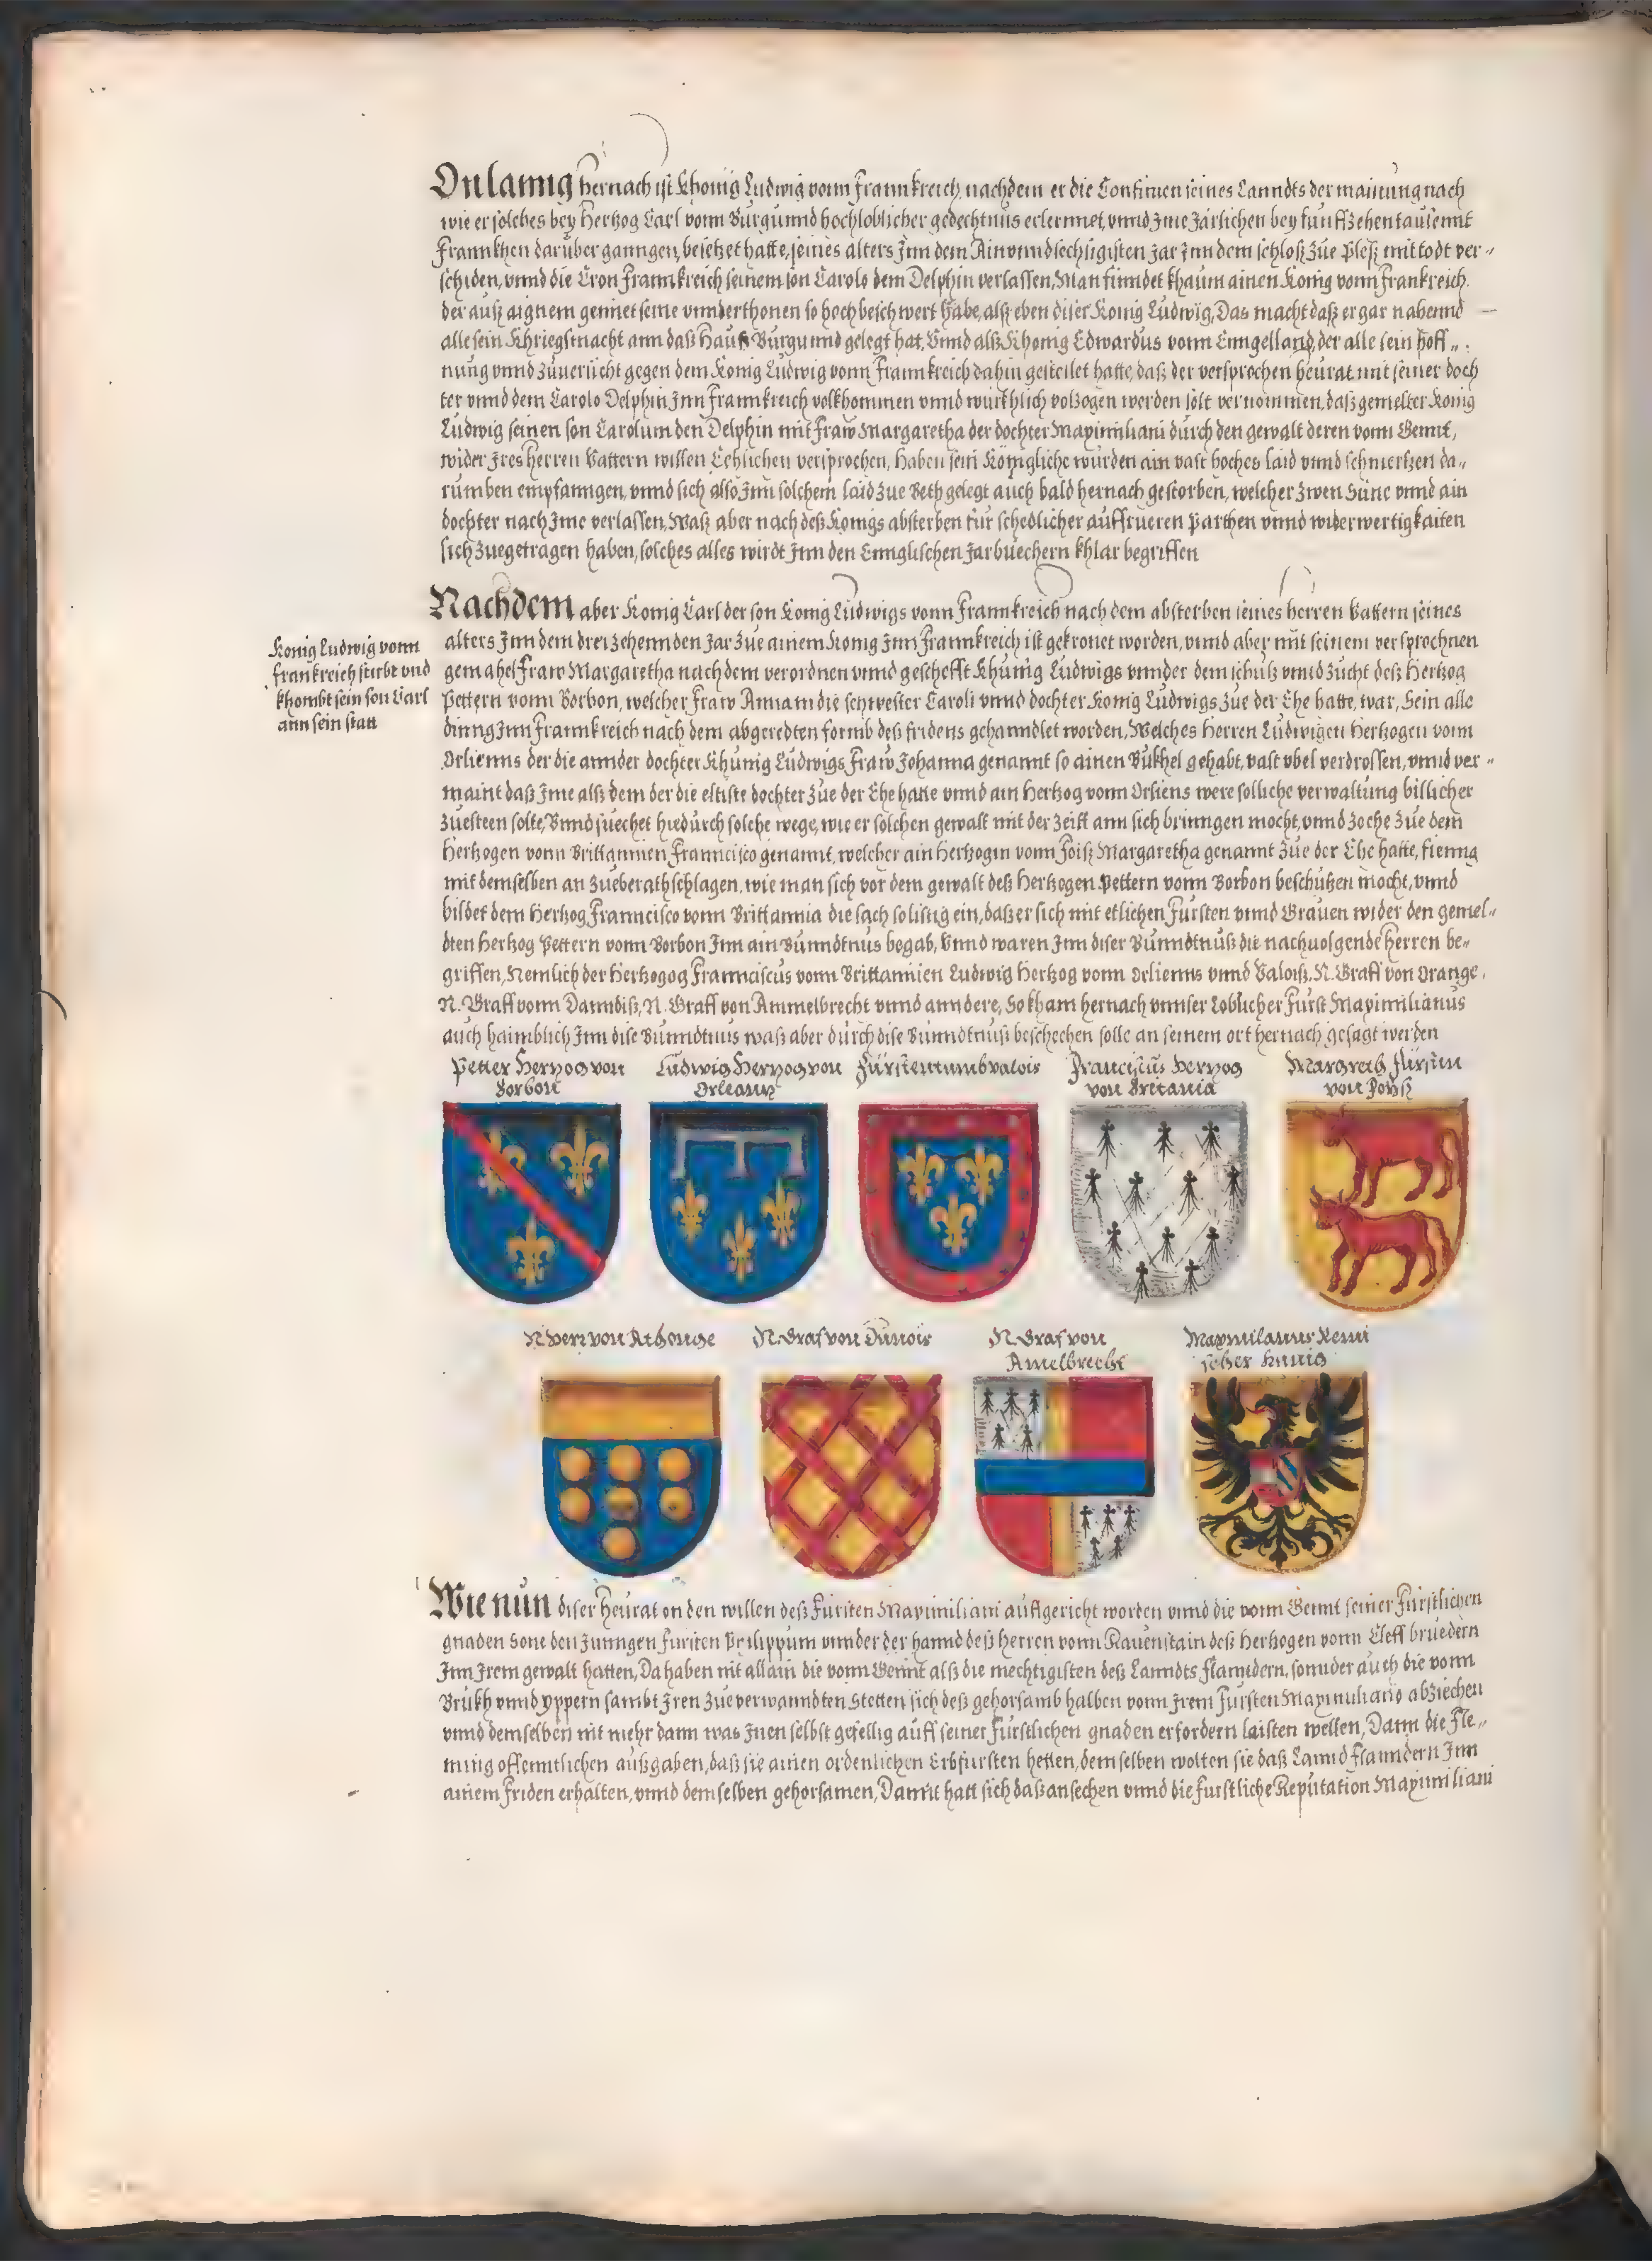 Onlanng hernach ist Khonig Ludwig vonn Frannkreich, nachdem er die Confinien seines Lanndts der mainung nach
wie er solches bey Hertzog Carl vonn Burgunnd hochloblicher gedechtnus erlernnet, vnnd Jme Järlichen bey funffzehentausennt
Frannkhen darüber ganngen, besetzet hatte, seines alters Jnn dem Ainvnndsechzigisten Jar Jnn dem schloß zue Pleß mit todt ver-
schiden, vnnd die Cron Frannkreich seinem son Carolo dem Delphin verlassen, Man finndet khaum ainen Konig vonn Frannkreich
der auß aignem gennet seine vnnderthonen so hoch beschwert habe, alß eben diser Konig Ludwig, Das macht daß er gar nahennd
alle sein Khriegsmacht ann daß Hauß Burgunnd gelegt hat, Vnnd alß Khonig Edwardus vonn Enngelland, der alle sein hoff-
nung vnnd zuuersicht gegen dem Konig Ludwig vonn Frannkreich dahin gestellet hatte, daß der versprochen heurat mit seiner doch
ter vnnd dem Carolo Delphin Jnn Frannkreich volkhommen vnnd würkhlich volzogen werden solt vernommen, daß gemelter Konig
Ludwig seinen son Carolum den Delphin mit Fraw Margaretha der dochter Maximiliani durch den gewalt deren vonn Gennt,
wider Jres herren Vattern willen Eehlichen versprochen, haben sein Königliche wurden ain vast hoches laid vnnd schmertzen da-
rumben empfanngen, vnnd sich also Jnn solchem laid zue Beth gelegt auch bald hernach gestorben, welcher zwen Süne vnnd ain
dochter nach Jme verlassen, Waß aber nach deß Konigs absterben für schedlicher auffrueren parthen vnnd widerwertigkaiten
sich zuegetragen haben, solches alles wirdt Jnn den Ennglischen Jarbuechern khlar begriffen
Nachdem aber Konig Carl der son Konig Ludwigs vonn Frannkreich nach dem absterben seines herren Vattern seines
alters Jnn dem dreizehennden Jar zue ainem Konig Jnn Frannkreich ist gekronet worden, vnnd aber mit seinem versprochnen
gemahel Fraw Margaretha nach dem verordnen vnnd geschefft Khunig Ludwigs vnnder dem schutz vnnd zucht deß Hertzog
Pettern vonn Borbon, welcher Fraw Annam die schwester Caroli vnnd dochter Konig Ludwigs zue der Ehe hatte, war, Sein alle
dinng Jnn Frannkreich nach dem abgeredten formb deß fridens gehanndlet worden, Welches herren Ludwigen Hertzogen vonn
Orlienns der die annder dochter Khunig Ludwigs Fraw Johanna genannt so ainen Bukhel gehabt, vast vbel verdrossen, vnnd ver-
maint daß Jme alß dem der die eltiste dochter zue der Ehe hatte vnnd ain Hertzog vonn Orliens were solliche verwaltung billicher
zuesteen solte, Vnnd suechet hiedurch solche wege, wie er solchen gewalt mit der zeitt ann sich brinngen mocht, vnnd zoche zue dem
Hertzogen vonn Brittannien Francisco genannt, welcher ain Hertzogin vonn Foiß Margaretha genannt zue der Ehe hatte, fienng
mit demselben an zueberathschlagen, wie man sich vor dem gewalt deß Hertzogen Pettern vonn Borbon beschutzen mocht, vnnd
bildet dem Hertzog Francisco vonn Brittannia die sach so listig ein, daß er sich mit etlichen Fursten vnnd Grauen wider den gemel-
dten Hertzog Pettern vonn Borbon Jnn ain Bunndtnus begab, Vnnd waren Jnn diser Bunndtnuß die nachuolgende herren be-
griffen, Nemlich der Hertzogog Franciscus vonn Brittannien Ludwig Hertzog vonn Orlienns vnnd Valoiß, N. Graff von Orange,
N. Graff vonn Danndiß, N. Graff von Ammelbrecht vnnd anndere, So kham hernach vnnser Loblicher Furst Maximilianus
auch haimblich Jnn dise Bunndtnus waß aber durch dise Bunndtnuß beschechen solle an seinem ort hernach gesagt werden
Konig Ludwig vonn
Frankreich stirbt vnd
khombt sein son Carl
ann sein statt
Petter Hertzog von
Borbon
Ludwig Hertzog von
Orleanz
Fürstentumb valois
Franciscus hertzog
von Britania
Margreth Fürstin
von Foyß
N herr von
N. Graf von Dunois
N. Graf von
Amelbrecht
Maxmilanus Remi
scher kunig
Wie nun diser heurat on den willen deß Fursten Maximiliani auffgericht worden vnnd die vonn Gennt seiner Fürstlichen
gnaden Sone den Junngen Fursten Philippum vnnder der hannd deß herren vonn Rauenstain deß Hertzogen vonn Cleff bruedern
Jnn Jrem gewalt hatten, Da haben nit allain die vonn Gennt alß die mechtigisten deß Lanndts Flanndern, sonnder auch die vonn
Brukh vnnd Yppern sambt Jren zueverwanndten Stetten sich deß gehorsamb halben vonn Jrem Fursten Maximiliano abziechen
vnnd demselben nit mehr dann was Jnen selbst gefellig auff seiner Fürstlichen gnaden erfordern laisten wellen, Dann die Fle-
ming offenntlichen außgaben, daß sie ainen ordenlichen Erbfursten hetten, demselben wolten sie daß Lannd Flanndern Jnn
ainem friden erhalten, vnnd demselben gehorsamen, Damit hatt sich daß ansechen vnnd die furstliche Reputation Maximiliani